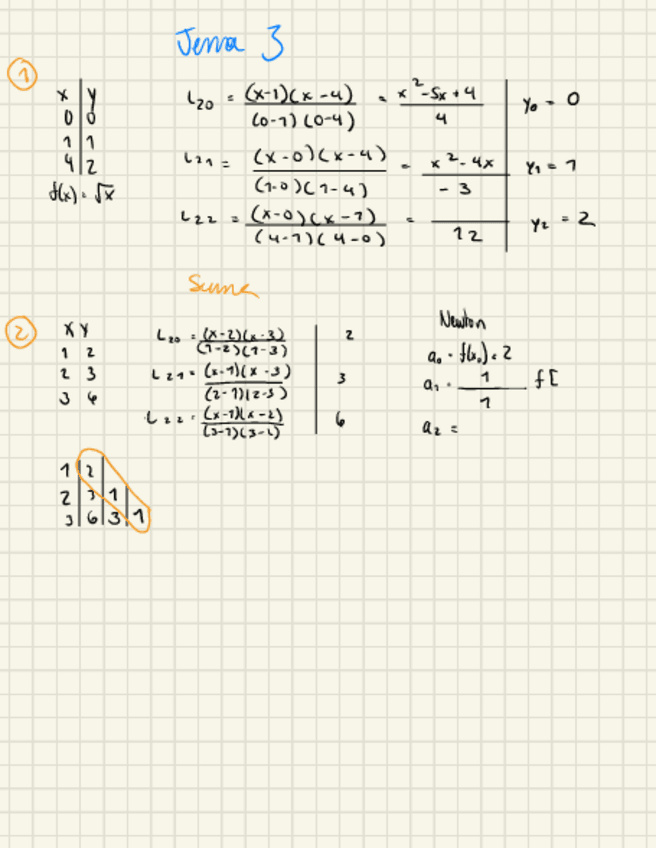 Tema 3
1
x y
0 0
1 1
4 2
f(x) = √x
L20 = (x-1)(x-4) / (0-1)(0-4) = x²-5x+4 / 4 | y0 = 0
L21 = (x-0)(x-4) / (1-0)(1-4) = x²-4x / -3 | y1 = 1
L22 = (x-0)(x-1) / (4-1)(4-0) = / 12 | y2 = 2
Suma
2
x y
1 2
2 3
3 6
L20 = (x-2)(x-3) / (1-2)(1-3) | 2
L21 = (x-1)(x-3) / (2-1)(2-3) | 3
L22 = (x-1)(x-2) / (3-1)(3-2) | 6
Newton
a0 = f(x0) = 2
a1 = 1 / 1 f[
a2 =
1 | 2
2 | 3 | 1
3 | 6 | 3 | 1